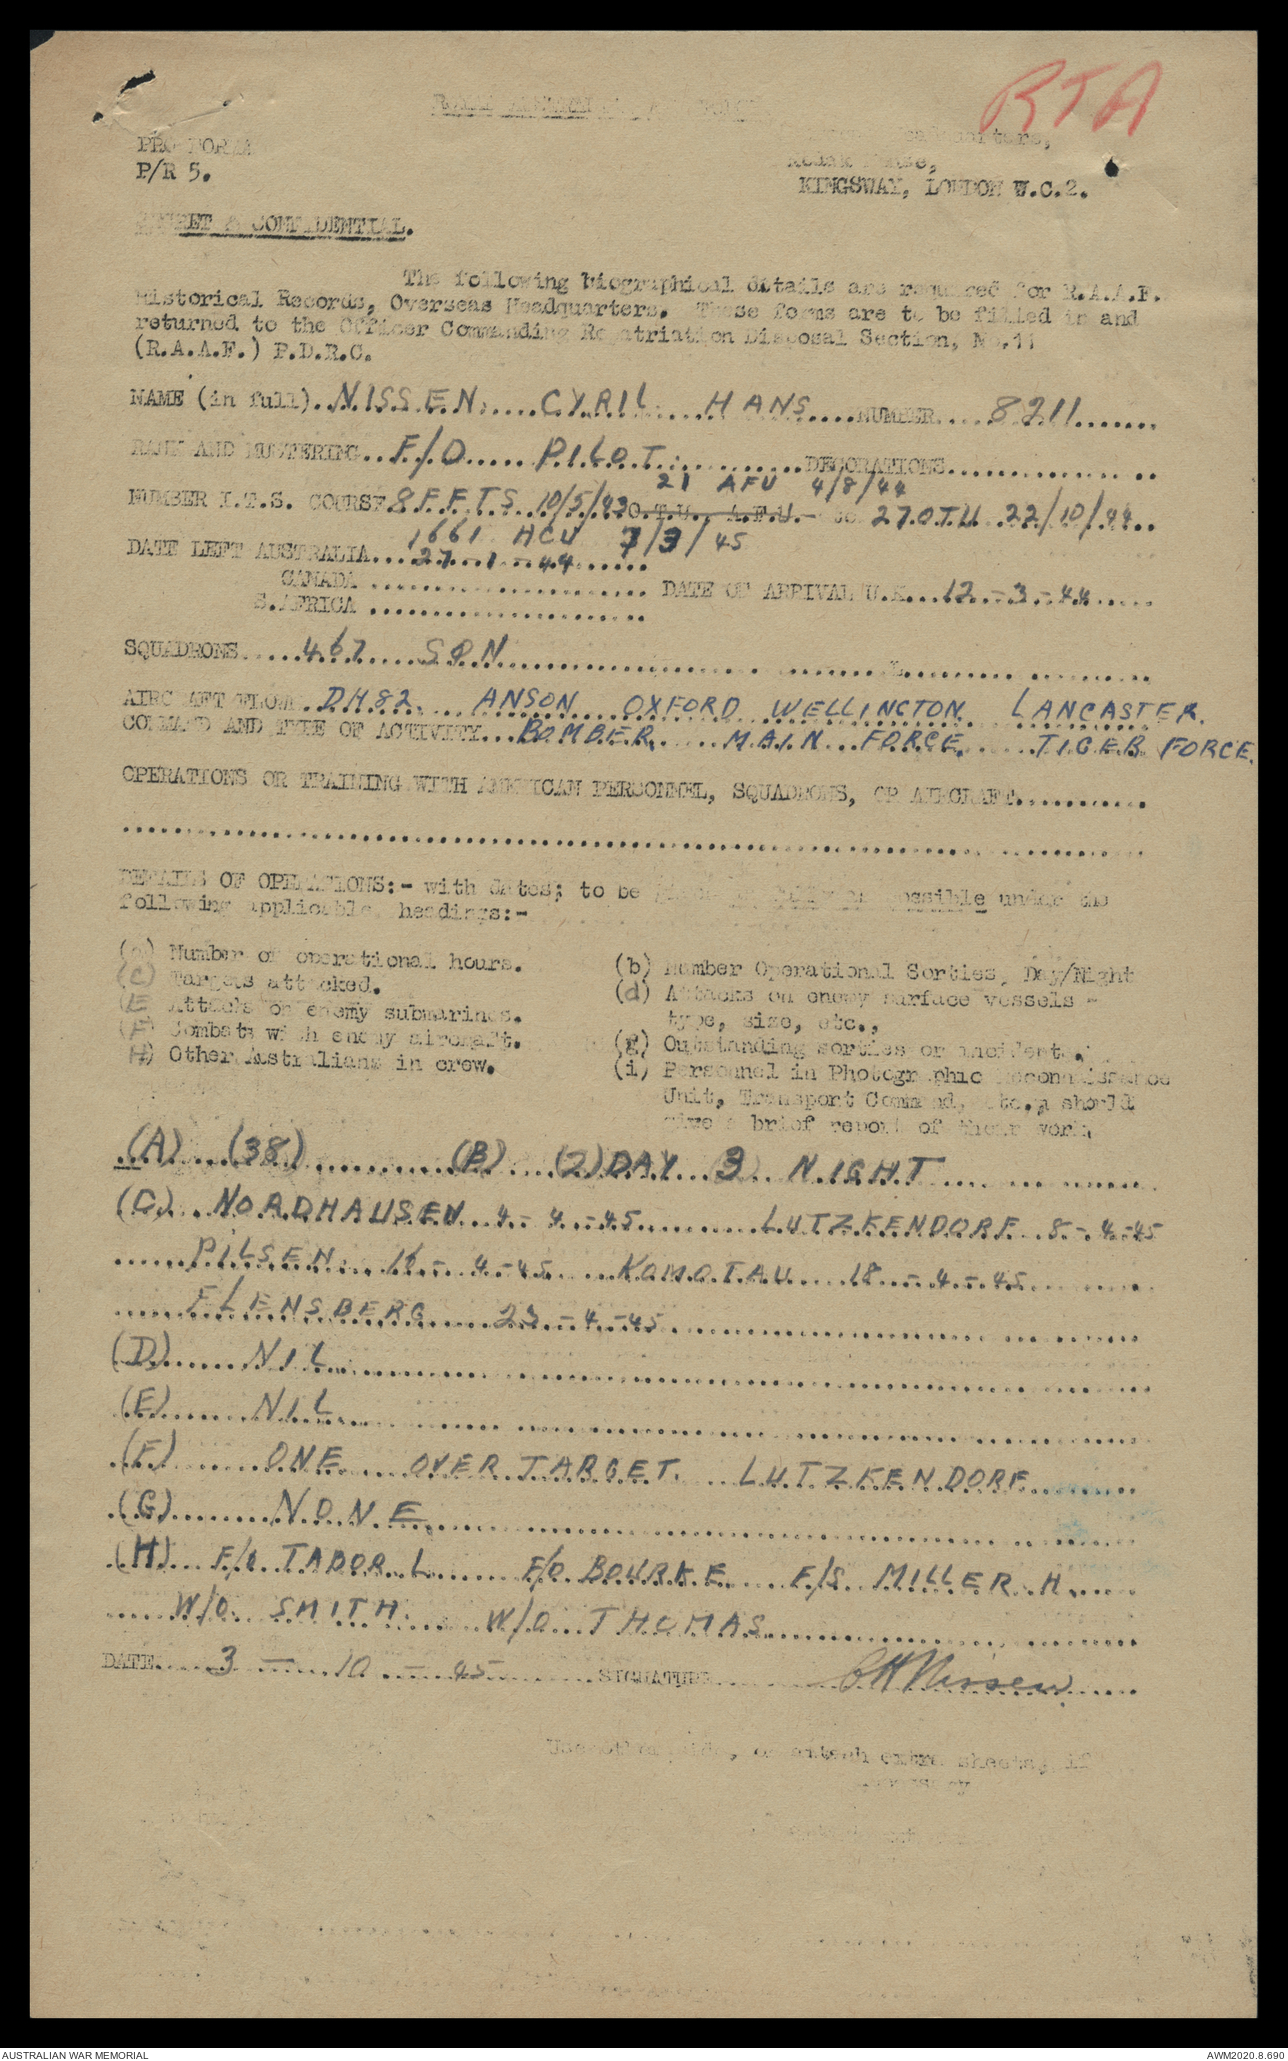 RTA
PRO FORMA
P/R 5.
KINGSWAY, LONDON W.C.2.
SECRET & CONFIDENTIAL.
The following biographical details are required for R.A.A.F.
Historical Records, Overseas Headquarters. These forms are to be filled in and
returned to the Officer Commanding Repatriation Disposal Section, No.11
(R.A.A.F.) P.D.R.C.
NAME (in full) NISSEN. CYRIL HANS NUMBER 8211
RANK AND MUSTERING F/O PILOT. DECORATIONS
21 AFU 4/8/44
NUMBER I.T.S. COURSE 8 E.F.T.S 10/5/43 O.T.U., A.F.U. 27 O.T.U 22/10/44
1661 HCU 7/3/45
DATE LEFT AUSTRALIA 27-1-44
CANADA
DATE OF ARRIVAL U.K. 12-3-44
S.AFRICA
SQUADRONS 467 SQN
AIRCRAFT FLOWN DH.82. ANSON OXFORD WELLINGTON LANCASTER.
COMMAND AND TYPE OF ACTIVITY BOMBER. MAIN FORCE. TIGER FORCE.
OPERATIONS OR TRAINING WITH AMERICAN PERSONNEL, SQUADRONS, OR AIRCRAFT
DETAILS OF OPERATIONS:- with dates; to be possible under the
following applicable headings:-
(a) Number of operational hours.
(b) Number Operational Sorties, Day/Night
(C) Targets attacked.
(d) Attacks on enemy surface vessels -
type, size, etc.,
(E) Attacks on enemy submarines.
(F) Combats with enemy aircraft.
(g) Outstanding sorties or incidents.
(H) Other Australians in crew.
(i) Personnel in Photographic Reconnaissance
Unit, Transport Command, etc., should
give a brief report of their work
(A) (38) (B) (2) DAY 3 NIGHT
(C) NORDHAUSEN 4-4-45 LUTZKENDORF 8-4-45
PILSEN. 16-4-45 KOMOTAU 18-4-45
FLENSBERG 23-4-45
(D) NIL
(E) NIL
(F) ONE OVER TARGET. LUTZKENDORF
(G) NONE
(H) F/O TABOR L F/O BOURKE F/S MILLER H
W/O SMITH. W/O THOMAS
DATE 3-10-45 SIGNATURE CH Nissen
Use other side, or attach extra sheets, if
necessary
AUSTRALIAN WAR MEMORIAL
AWM2020.8.690